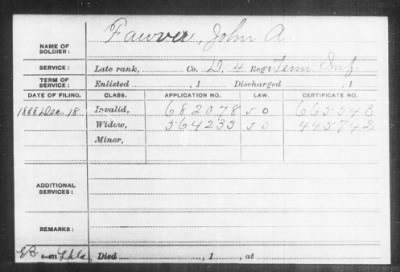 NAME OF SOLDIER: Fawver, John A
SERVICE: Late rank, Co. D, 4 Reg't Tenn Inf
TERM OF SERVICE: Enlisted , 1 Discharged , 1
DATE OF FILING. CLASS. APPLICATION NO. LAW. CERTIFICATE NO.
1888 Dec. 18 Invalid, 682078 S O
Widow, 564233 S O 445742
Minor,
ADDITIONAL SERVICES:
REMARKS:
Died , 1 , at